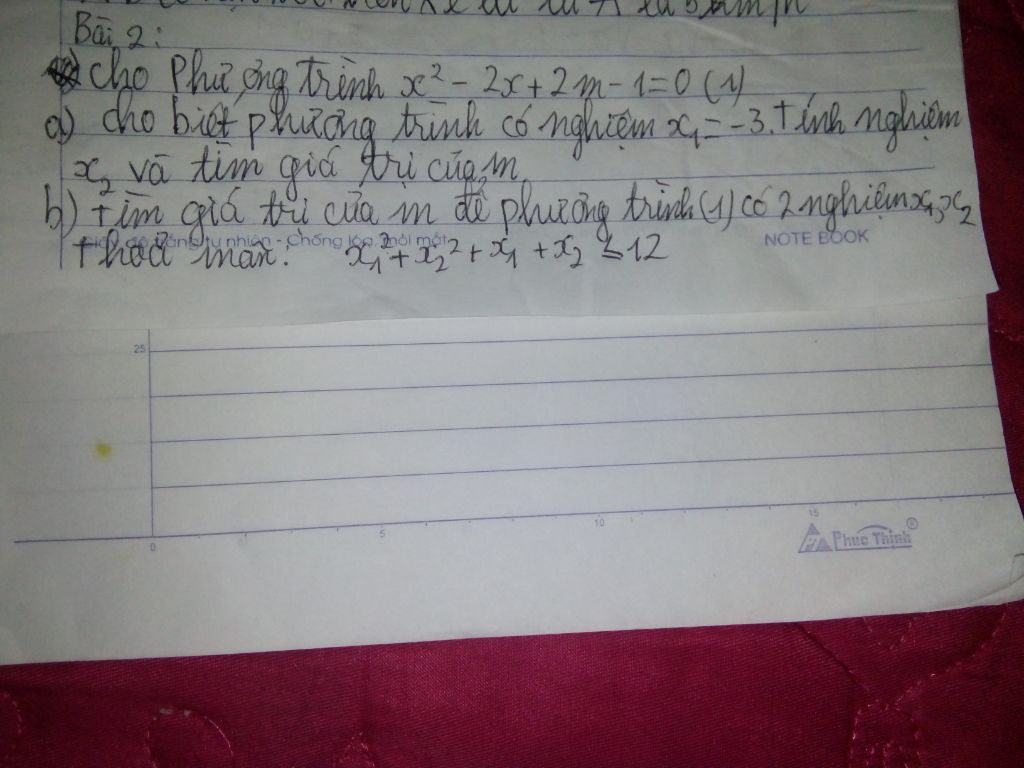 Bài 2:
cho Phương trình x² - 2x + 2m - 1 = 0 (1)
a) cho biết phương trình có nghiệm x₁ = -3. Tính nghiệm
x₂ và tìm giá trị của m
b) Tìm giá trị của m để phương trình (1) có 2 nghiệm x₁, x₂
thoả mãn: x₁² + x₂² + x₁ + x₂ ≤ 12
tự nhiên - Chống lóa, mỏi mắt
NOTE BOOK
25
0 5 10 15
Phuc Thinh ®